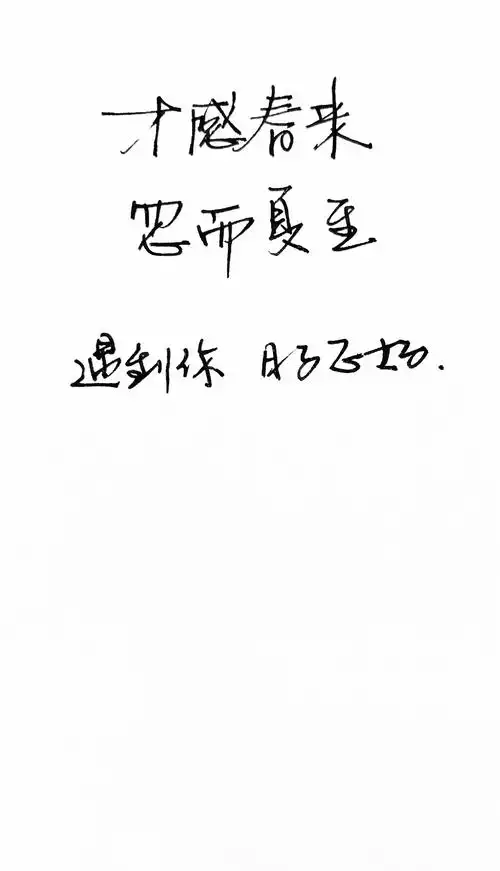 才感春来
忽而夏至
遇到你 日子正好.